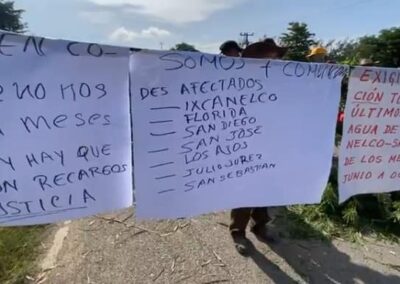 EN CO-
QUE NO NOS
MESES
Y HAY QUE
CON RECARGOS
JUSTICIA
SOMOS 7 COMUNIDA
DES AFECTADOS
— IXCANELCO
— FLORIDA
— SAN DIEGO
— SAN JOSE
— LOS AJOS
— JULIO JUREZ
— SAN SEBASTIAN
EXIGI
CIÓN T
ÚLTIMO
AGUA DE
NELCO-S
DE LOS ME
JUNIO A O